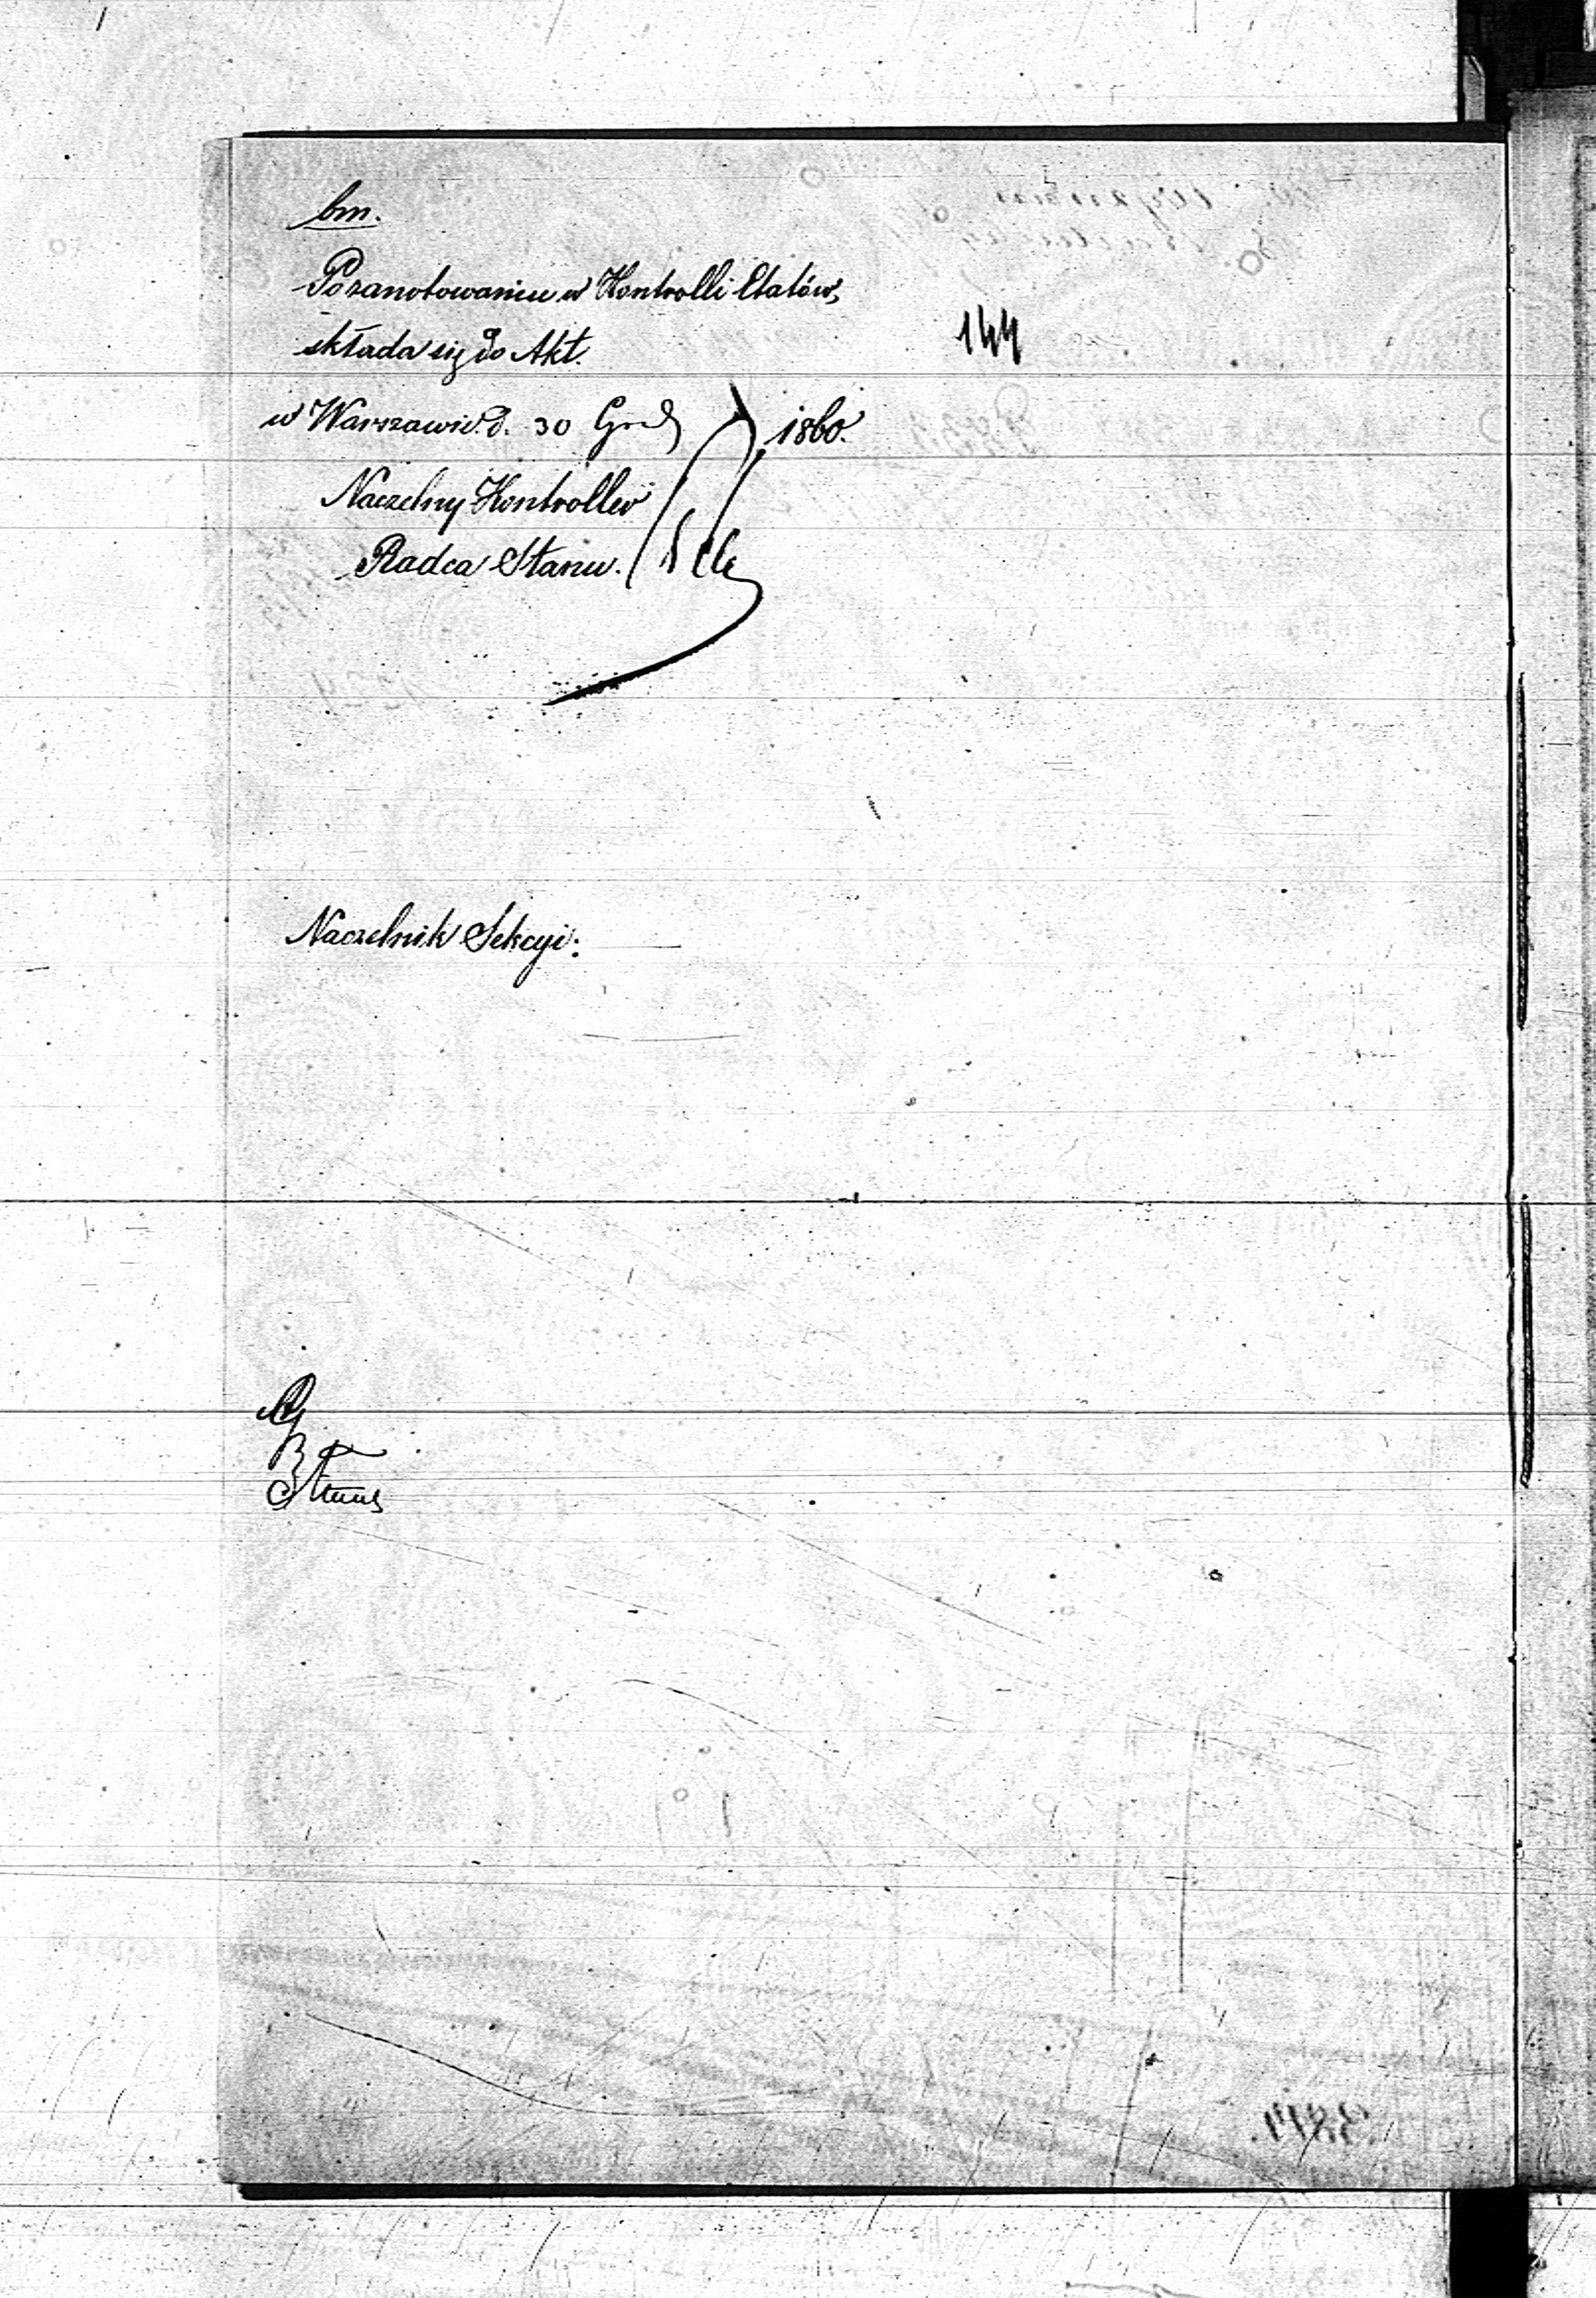 bm.
Po zanotowaniu w Kontrolli Etatów,
składa się do Akt.
144
w Warszawie d. 30 Grud 1860.
Naczelny Kontroller
Radca Stanu.
Naczelnik Sekcyi: